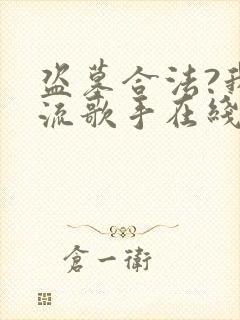 盗墓合法?我
流歌手在綫
倉一衛